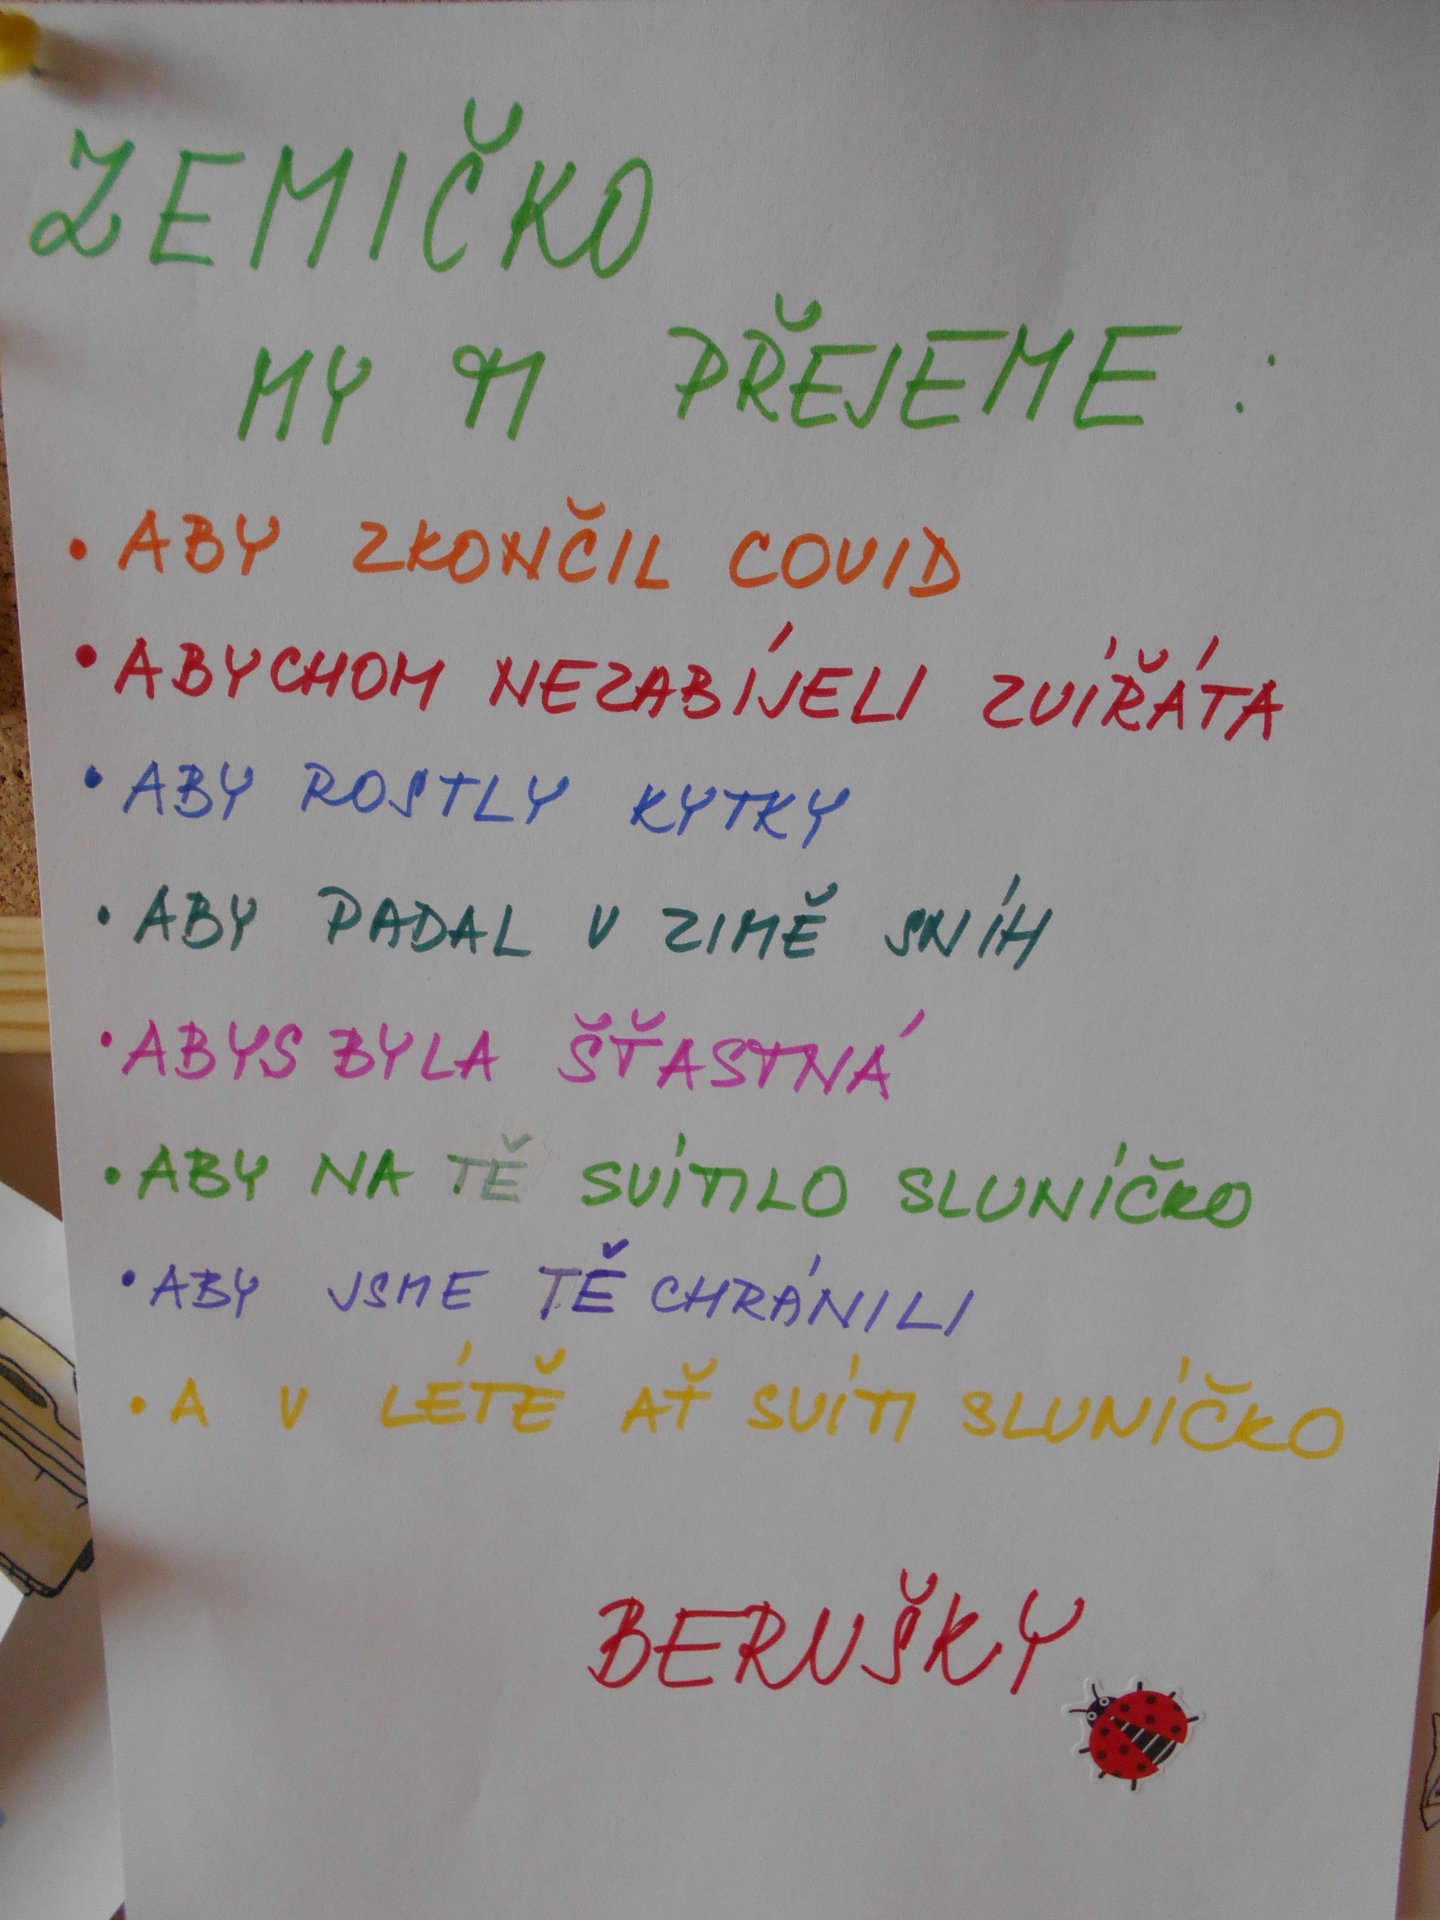 ZEMIČKO
MY TI PŘEJEME:
• ABY ZKONČIL COVID
• ABYCHOM NEZABÍJELI ZVÍŘÁTA
• ABY ROSTLY KYTKY
• ABY PADAL V ZIMĚ SNÍH
• ABYS BYLA ŠŤASTNÁ
• ABY NA TĚ SVÍTILO SLUNÍČKO
• ABY JSME TĚ CHRÁNILI
• A V LÉTĚ AŤ SVÍTI SLUNÍČKO
BERUŠKY